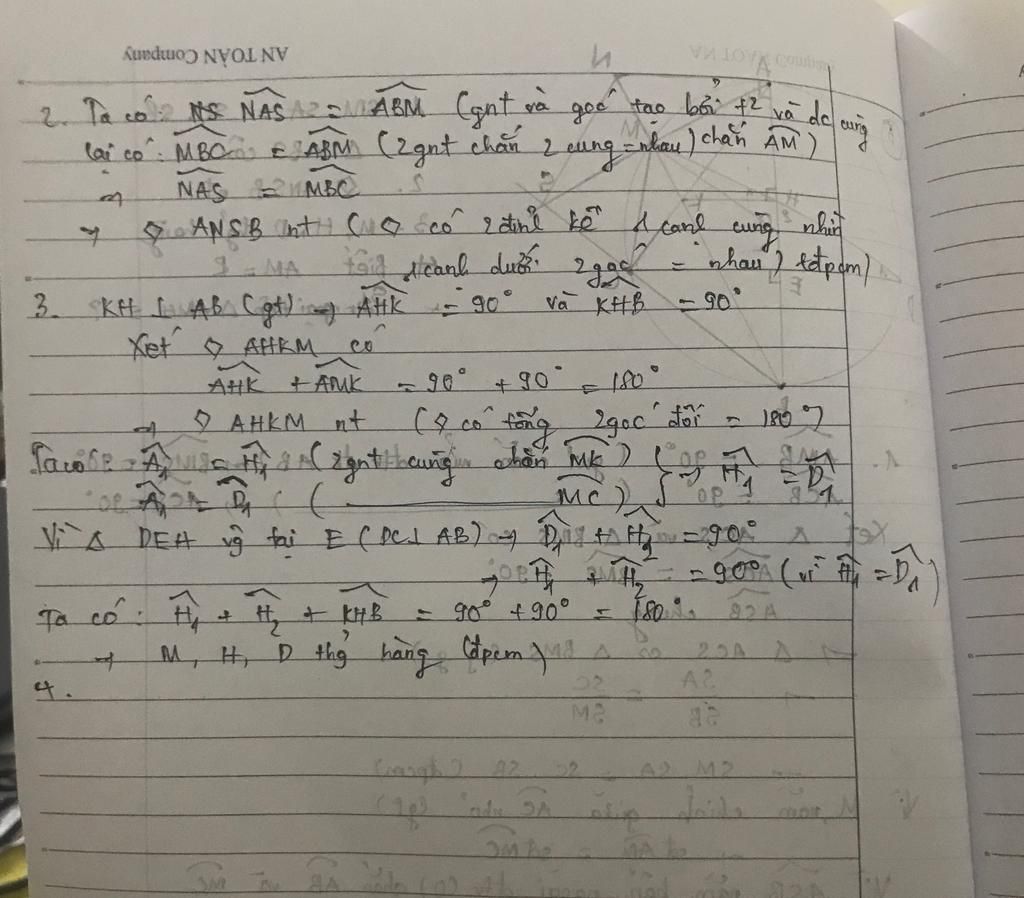 AN TOÀN Company
2. Ta có: NS NAS = ABM (gnt và góc tạo bởi t2 và dc cùng chắn AM)
lại có: MBC = ABM (2gnt chắn 2 cung = nhau)
→ NAS = MBC
→ ◇ ANSB nt (◇ có 2 đỉnh kề 1 cạnh cùng nhìn
1 cạnh dưới 2 góc = nhau) (đpcm)
3. KH ⊥ AB (gt) → AHK = 90° và KHB = 90°
Xét ◇ AHKM có
AHK + AMK = 90° + 90° = 180°
→ ◇ AHKM nt (◇ có tổng 2 góc đối = 180°)
Ta có: A₁ = H₁ (2gnt cùng chắn MK) } → H₁ = D₁
A₁ = D₁ ( ——— MC)
Vì Δ DEH vg tại E (DC ⊥ AB) → D₁ + H₂ = 90°
→ H₁ + H₂ = 90° (vì H₁ = D₁)
Ta có: H₁ + H₂ + KHB = 90° + 90° = 180°
→ M, H, D thg hàng (đpcm)
4.